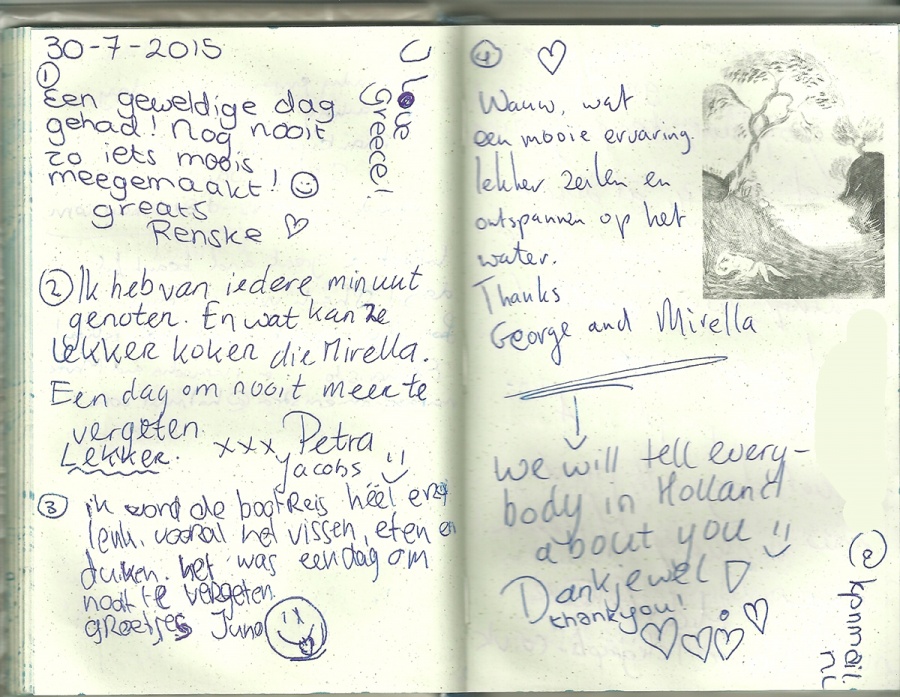 30-7-2015
①
Een geweldige dag
gehad! Nog nooit
zo iets moois
meegemaakt!
greats
Renske
Love
Greece!
② Ik heb van iedere minuut
genoten. En wat kan ze
lekker koken die Mirella.
Een dag om nooit meer te
vergeten
Lekker. xxx Petra
Jacobs
③ ik vond de bootReis héél erg
leuk. vooral het vissen, eten en
duiken. het was een dag om
nooit te vergeten.
groetjes Juno
④
Wauw, wat
een mooie ervaring.
lekker zeilen en
ontspannen op het
water.
Thanks
George and Mirella
we will tell every-
body in Holland
about you
Dankjewel
thankyou!
@kpnmail.
nl